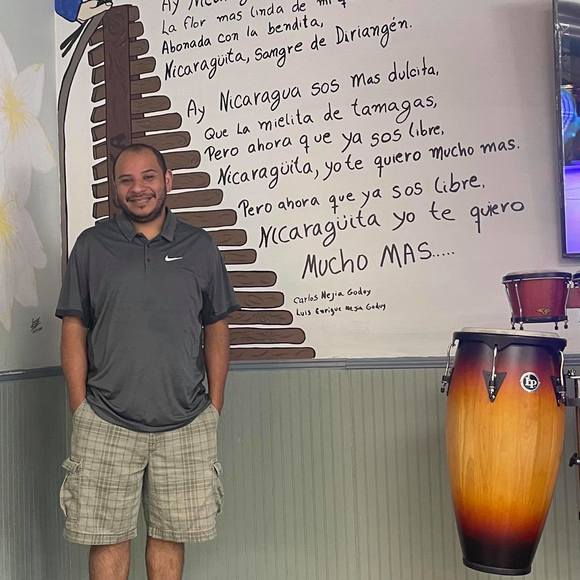 Ay Nicar
La flor mas linda de mi q
Abonada con la bendita,
Nicaragüita, Sangre de Diriangén.
Ay Nicaragua sos mas dulcita,
Que La mielita de tamagas,
Pero ahora que ya sos libre,
Nicaragüita, yo te quiero mucho mas.
Pero ahora que ya sos Libre,
Nicaragüita yo te quiero
Mucho MAS.....
Carlos Mejia Godoy
Luis Enrique Mejia Godoy
LP